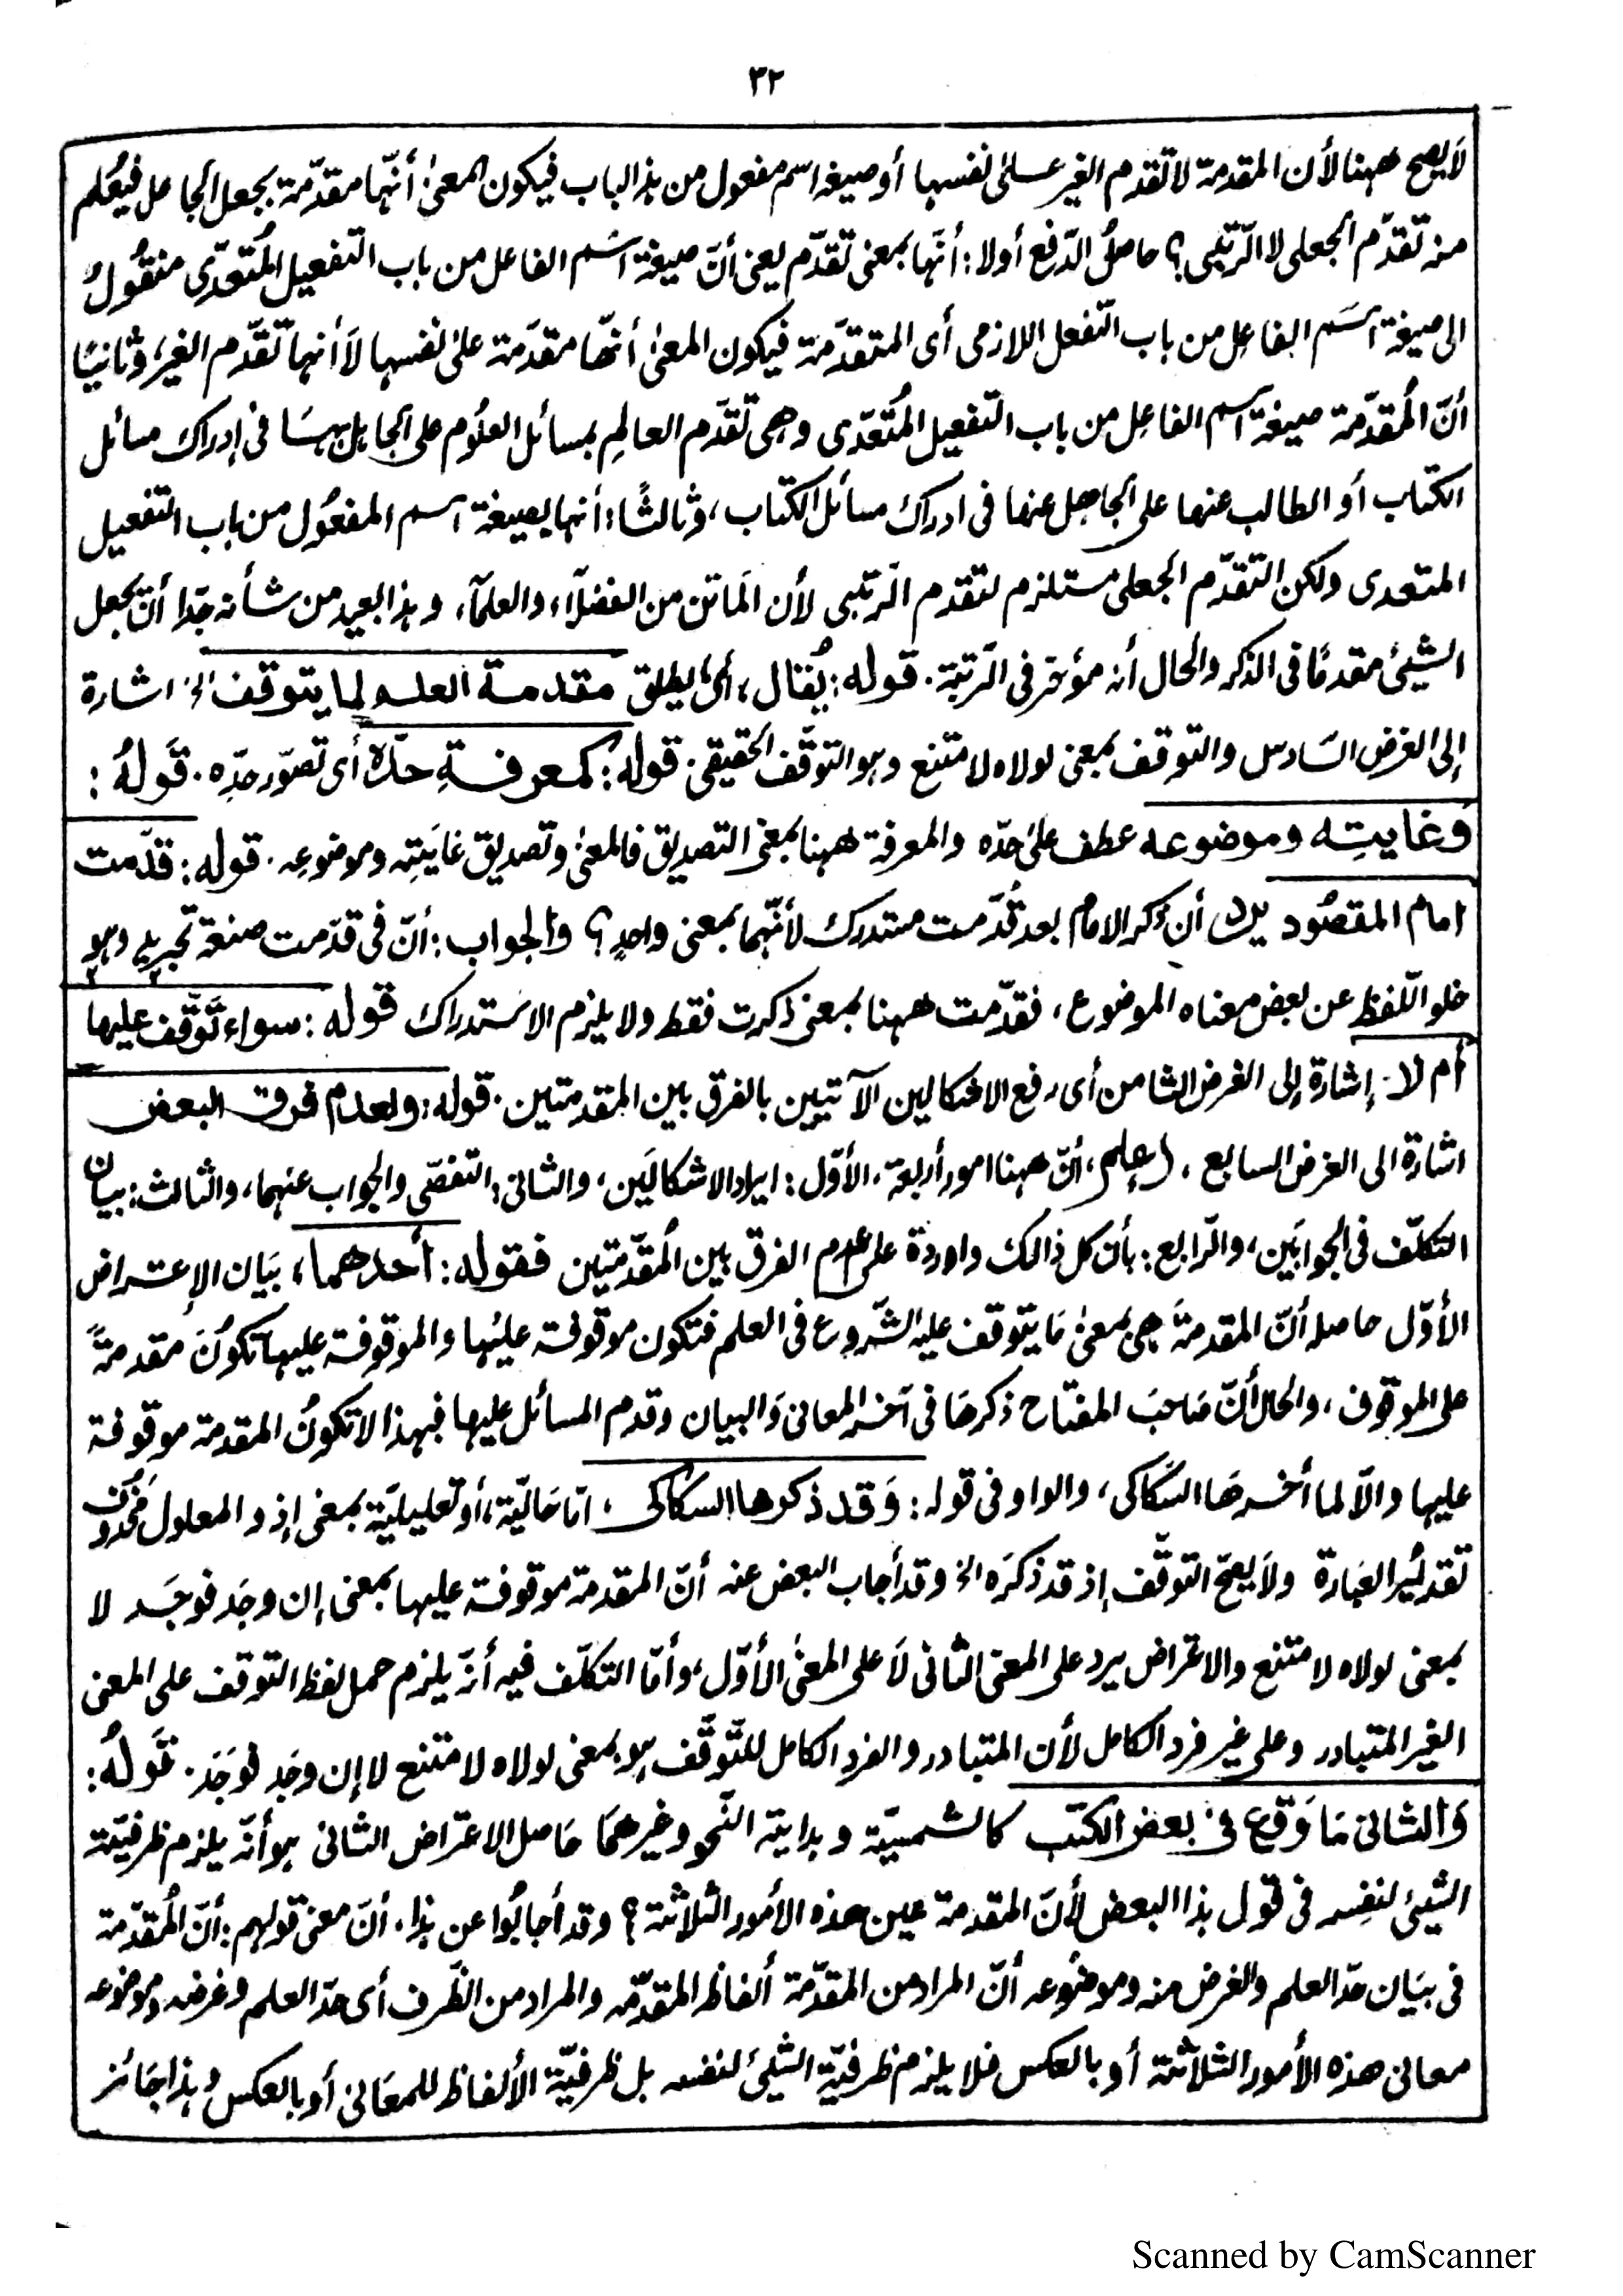 ٣٢
لَا يصح ههنا لأن المقدمة لا تقدم الغير على نفسها أو صيغة اسم مفعول من هذا الباب فيكون المعنىٰ أنّها مقدّمة بجعل الجاعل فيُعلم
منه تقدّم الجعلى لا الرّتبى؟ حاصلُ الدّفع أولا: أنّها بمعنى تقدّم يعنى أنّ صيغة اسَم الفاعل من باب التفعيل المُتعدّى منقُولٌ
الى صيغة اسَم الفاعِل من باب التّفعل اللازمى أى المتقدّمَة فيكون المعنىٰ أنّها متقدّمة علىٰ نفسها لَا أنها تقدّم الغير، وثانيًا
أنّ المُقدّمة صيغة اسم الفاعِل من باب التفعيل المُتعدّى وهى تقدّم العالِم بمسائل العلُوم على الجاهل بهسَا فى إدراك مسائل
الكتاب أو الطالب عنها على الجاهِل عنها فى ادراك مسائل الكتاب، وثالثًا: أنها بصيغة اسم المفعُول من باب التفعيل
المتعدى ولكن التقدّم الجعلى مستلزم لتقدم الرّتبى لأن المَاتن من الفضلَآء والعلمَآء، وهذا بعيد من شأنه جدّا أن يجعل
الشيئ مقدمًا فى الذكر والحال أنه مؤخر فى الرّتبة. قوله: يُقال، أى يطلق مقدمة العلم لما يتوقف الخ اشارة
إلى الغرض السّادس والتوقف بمعنى لولاه لا متنع وهو التوقّف الحقيقى. قوله: كمعرفةِ حدّه أى تصوّر حدِّه. قَولهُ:
وَغايتِه وموضوعه عطف علىٰ حدّه والمعرفة ههنا بمعنى التصديق فالمعنىٰ وتصديق غايَتِه وموضوعِه. قوله: قدّمت
امام المقصُود يرد أن ذكر الامام بعد قُدّمت مستدرك لأنّهما بمعنى واحدٍ؟ والجواب: أنّ فى قدّمت صنعة تجريد وهو
خلو اللّفظ عن بعض معناه الموضوع، فقدّمت ههنا بمعنى ذكرت فقط ولا يلزم الاستدراك قوله: سواء تَوقّف عليها
أم لا. إشارة إلى الغرض الثامن أى رفع الاشكالين الآتيين بالفرق بين المقدمتين. قوله: ولعدم فرق البعض
اشارة الى الغرض السابع. (إعلم) أنّ ههنا امور أربعة، الأوّل: ايراد الاشكالَين، والثانى: التفصّى والجواب عنهما، والثالث: بيان
التكلّف فى الجوابَين، والرّابع: بأن كل ذالك واردة على عدم الفرق بين المُقدّمتين فقوله: أحدهما، بَيان الإعتراض
الأوّل حاصله أنّ المقدمةَ هى بمعنىٰ مَا يتوقف عليه الشّروع فى العلم فتكون موقوفة عليُها والموقوفة عليها تكونُ مقدمةً
على الموقوف، والحال أنّ صَاحبَ المفتاح ذكرهَا فى آخر المعانى وَالبيان وقدم المسائل عليها فبهذا لا تكونُ المقدمة موقوفة
عليها والّا لما أخرهَا السّكاكى، والواو فى قوله: وَقد ذكرها السكاكى، امّا حَاليّة، أو تعليليّة بمعنى إذ والمعلول مَحْذُوف
تقديُر العبَارة ولَا يصحّ التوقّف إذ قد ذكرَه الخ وقد أجاب البعض عنه أنّ المقدمة موقوفة عليها بمعنى إن وجَد فوجَد لا
بمعنى لولاه لا متنع والاعتراض يرد على المعنى الثانى لَا على المعنَى الأوّل، وأمّا التكلّف فيه أنّه يلزم حمل لفظ التوقف على المعنى
الغير المتبادر وعلى غير فرد الكامل لأن المتبادر والفرد الكامل للتّوقّف هو بمعنى لولاه لا متنع لا إن وجَد فوجَدَ. قَولهُ:
وَالثانى مَا وَقع فى بعض الكتب كالشمسيّة وهداية النّحو وغيرهمَا حَاصل الاعتراض الثانى هو أنّه يلزم ظرفيّة
الشيئ لنفسِه فى قول هذا البعض لأنّ المقدمة عين هذه الأمور الثّلاثة؟ وقد أجابُوا عن هذا. أنّ معنى قولهم: أنّ المُقدّمة
فى بيَان حدّ العلم والغرض منه وموضوعه أنّ المراد من المقدّمة ألفاظ المقدّمه والمراد من الظّرف أى حدّ العلم وغرضه وموضوعه
معانى هذه الأمور الثلاثة أو بالعكس فلا يلزم ظرفيّة الشيئ لنفسه بل ظرفيّة الألفاظ للمعَانى أو بالعكس وهذا جَائز
Scanned by CamScanner